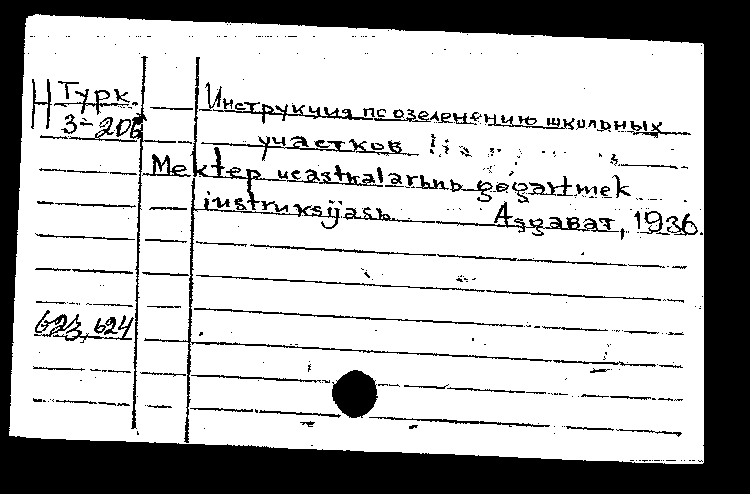 Н Турк.
3-206
Инструкция по озеленению школьных
участков
Mektep ucastkalarьnь gegertmek
instruksijasь Aşgaвaт, 1936.
623, 624